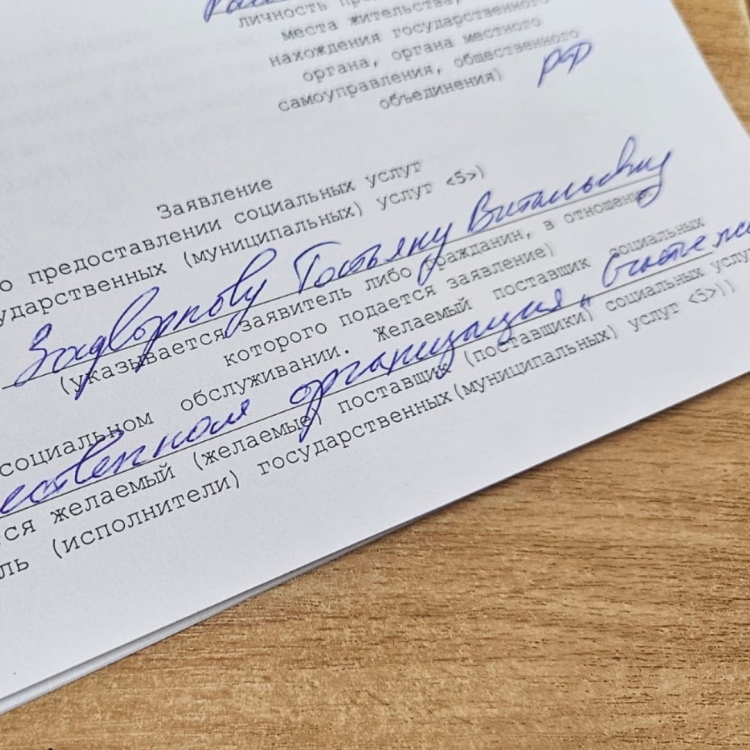 личность
места жительства,
нахождения государственного
органа, органа местного
самоуправления, общественного
объединения)
РФ
Заявление
о предоставлении социальных услуг
ударственных (муниципальных) услуг <5>)
Задворнову Татьяну Витальевну
(указывается заявитель либо гражданин, в отношении
которого подается заявление)
социальном обслуживании. Желаемый поставщик социальных
ественной организация „
ся желаемый (желаемые) поставщик (поставщики) социальных услуг
ль (исполнители) государственных (муниципальных) услуг <5>))